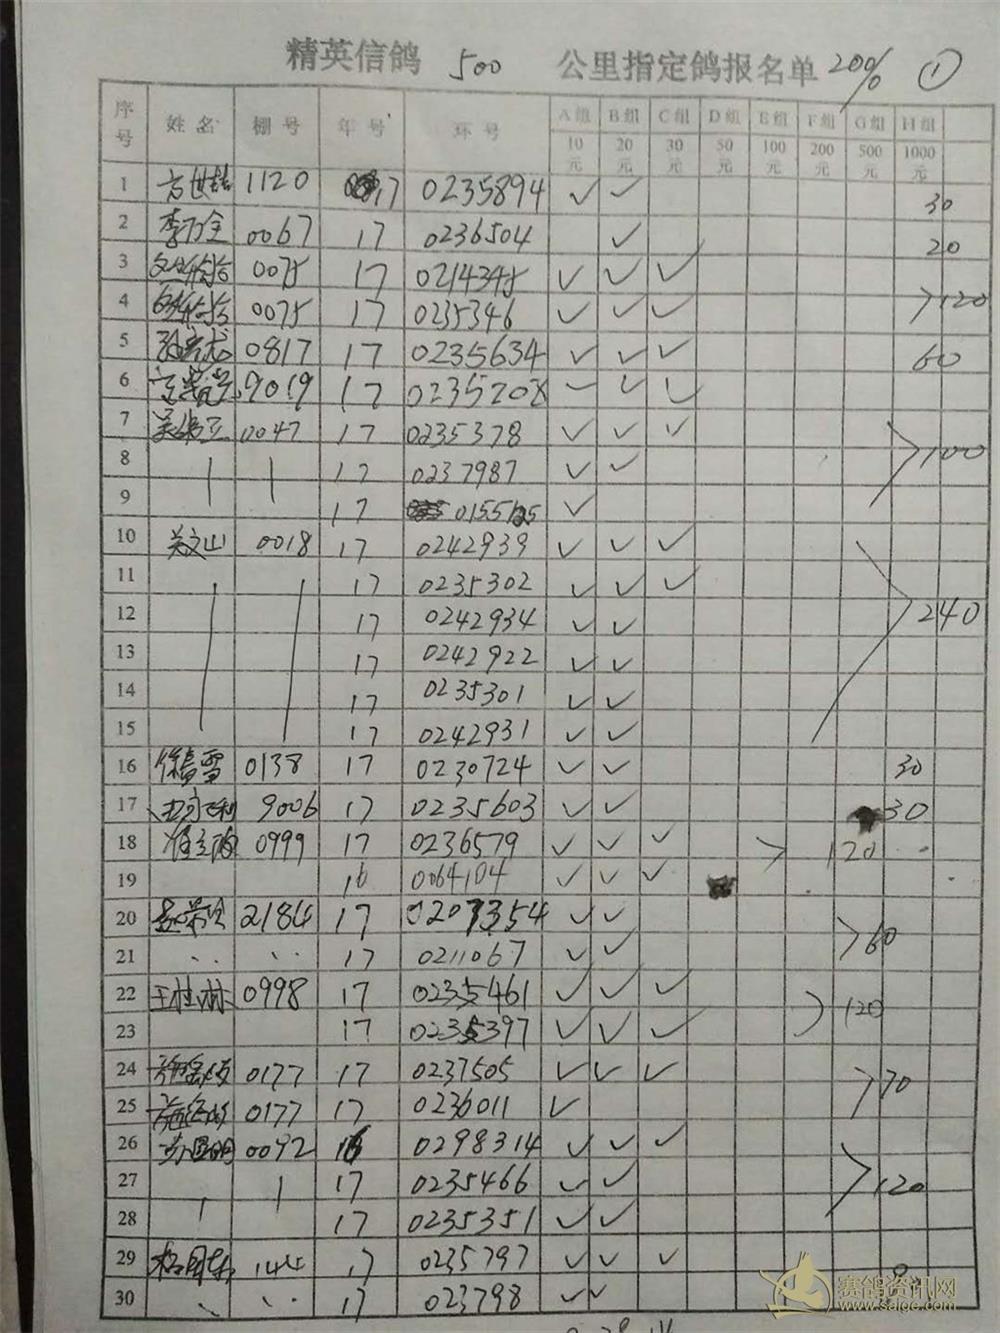 精英信鸽 500 公里指定鸽报名单 20% ①
序号 姓名 棚号 年号 环号 A组 B组 C组 D组 E组 F组 G组 H组
10元 20元 30元 50元 100元 200元 500元 1000元
1 1120 17 0235894 ✓ ✓ 30
2 李万全 0067 17 0236504 ✓ 20
3 0075 17 0214345 ✓ ✓ ✓
4 0075 17 0235346 ✓ ✓ ✓ >120
5 0817 17 0235634 ✓ ✓ ✓ 60
6 9019 17 0235208 ✓ ✓ ✓
7 0047 17 0235378 ✓ ✓ ✓
8 17 0237987 ✓ ✓ >100
9 17 ✓
10 关文山 0018 17 0242939 ✓ ✓ ✓
11 17 0235302 ✓ ✓ ✓
12 17 0242934 ✓ ✓ >240
13 17 0242922 ✓ ✓
14 17 0235301 ✓ ✓
15 17 0242931 ✓ ✓
16 0138 17 0230724 ✓ ✓ 30
17 9006 17 0235603 ✓ ✓ 30
18 0999 17 0236579 ✓ ✓ ✓ > 120
19 16 0064104 ✓ ✓ ✓
20 2184 17 0207354 ✓ ✓
21 17 0211067 ✓ ✓ >60
22 王桂林 0998 17 0235461 ✓ ✓ ✓
23 17 0235397 ✓ ✓ ✓ 120
24 0177 17 0237505 ✓ ✓ ✓
25 0177 17 0236011 ✓ >70
26 0092 16 0298314 ✓ ✓ ✓
27 17 0235466 ✓ ✓ >120
28 17 0235351 ✓ ✓
29 144 17 0235797 ✓ ✓ ✓
30 17 023798 ✓ ✓
赛鸽资讯网
www.saige.com